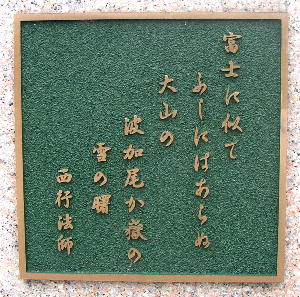 富士に似て
ふしにはあらぬ
大山の
波加尾か嶽の
雪の曙
西行法師